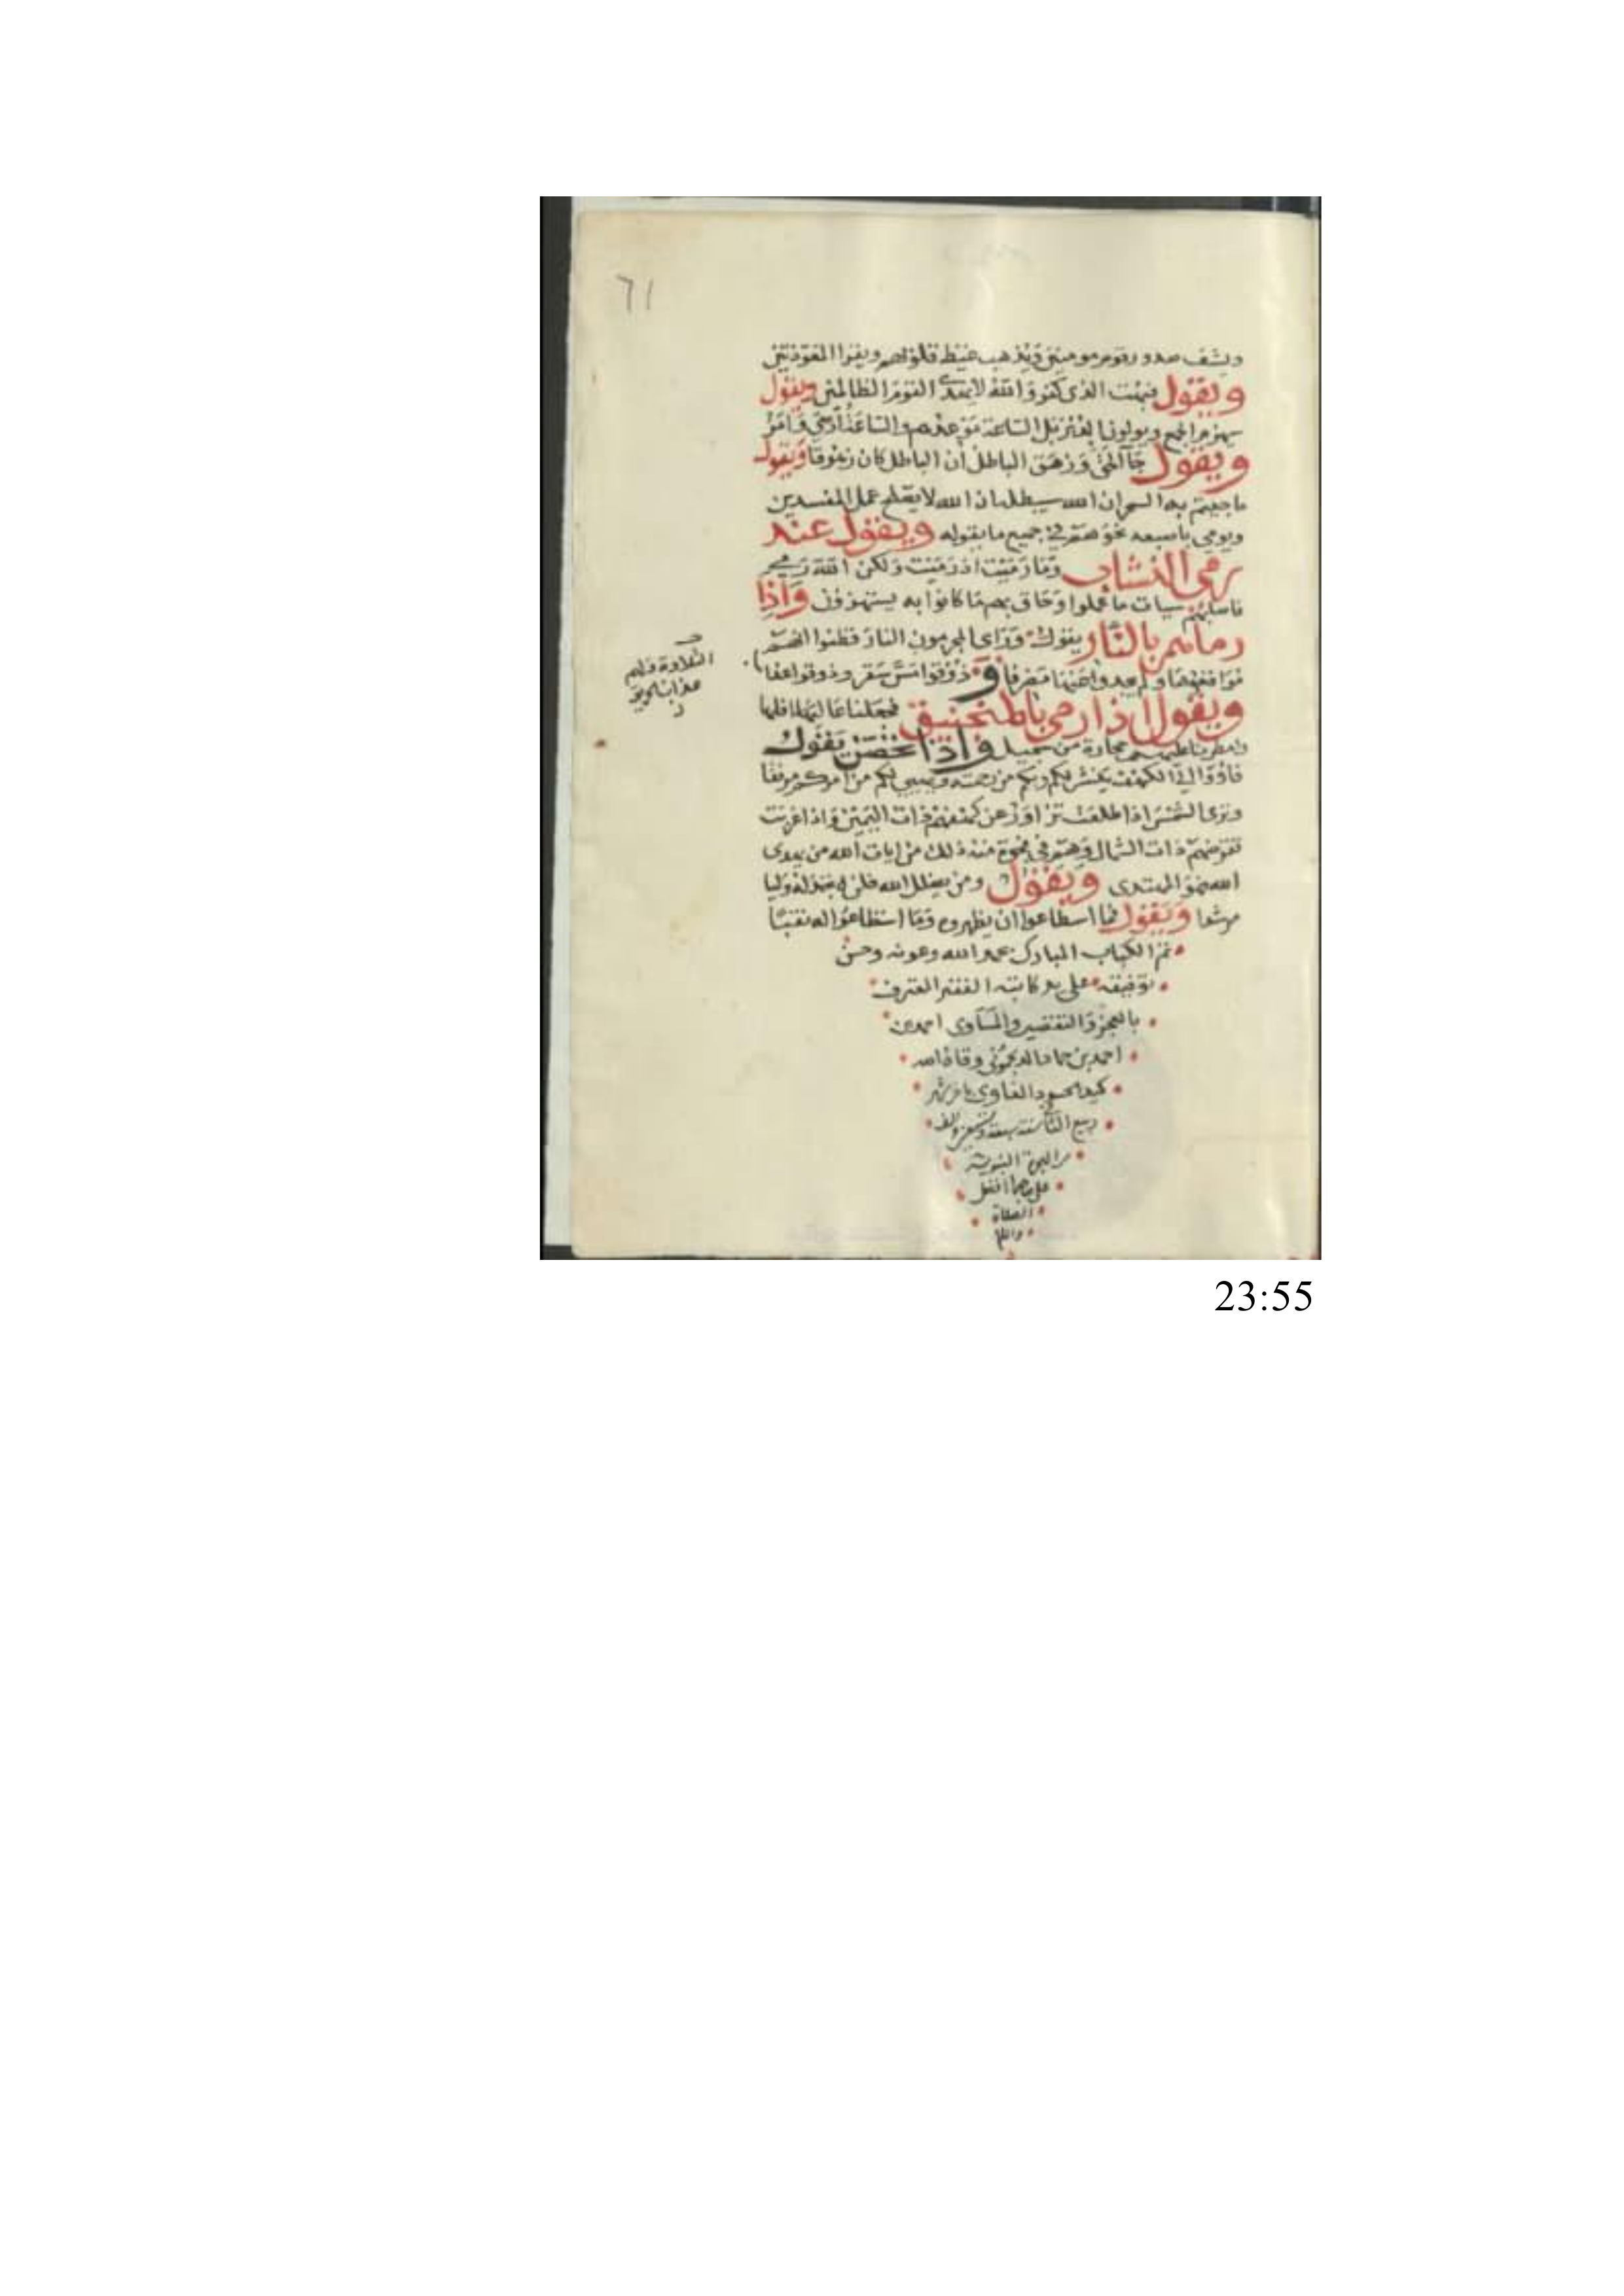 ٦١
ويشف صدور قوم مومنين ويذهب غيظ قلوبهم ويقرا المعوذتين
ويقول فبهت الذى كفر والله لا يهدى القوم الظالمين ويقول
سيهزم الجمع ويولون الدبر بل الساعة موعدهم والساعة أدهى وامر
ويقول جآ الحق وزهق الباطل ان الباطل كان زهوقا ويقول
ما جيتم به السحر ان الله سيبطله ان الله لا يصلح عمل المفسدين
ويومي باصبعه نحوهم في جميع ما يقوله ويقول عند
رمي النشاب وما رميت اذ رميت ولكن الله رمى
فاصابهم سيات ما عملوا وحاق بهم ما كانوا به يستهزؤن واذا
رماهم بالنار يقول وراى المجرمون النار فظنوا انهم
مواقعوها ولم يجدوا عنها مصرفا و ذوقوا مس سقر وذوقوا
التلاوة ولهم
عذاب الحريق
ويقول اذا رمي بالمنجنيق فجعلنا عاليها سافلها
وامطرنا عليهم حجارة من سجيل واذا تحصن يقول
فاؤوا الى الكهف ينشر لكم ربكم من رحمته ويهيي لكم من امركم مرفقا
وترى الشمس اذا طلعت تزاور عن كهفهم ذات اليمين واذا غربت
تقرضهم ذات الشمال وهم في فجوة منه ذلك من ايات الله من يهدى
الله فهو المهتدى ويقول ومن يضلل الله فلن تجد له وليا
مرشدا ويقول فما اسطاعوا ان يظهروه وما استطاعوا له نقبا
تم الكتاب المبارك بحمد الله وعونه وحسن
توفيقه على يد كاتبه الفقير المعترف
بالعجز والتقصير والمساوى احمد بن
احمد بن وقاه الله
كيد الحسود الغاوى شهر
ربيع سنة والف
من الهجرة النبوية
على صاحبها افضل
الصلاة
والسلام
23:55